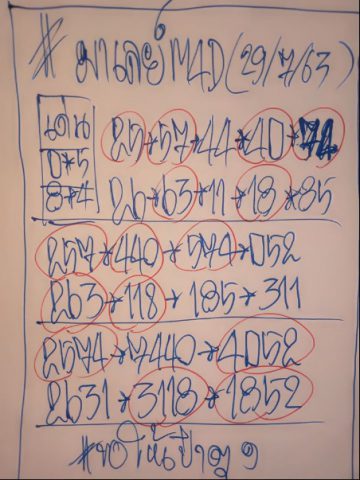 # มาเลย์ M4D (29/7/63)
เด่น 25*57*44*40*74
0*5 26*63*11*18*85
8*4
257*440*574*052
263*118*185*311
2574*7440*4052
2631*3118*1852
#ขอให้เป๋าตุง ๆ